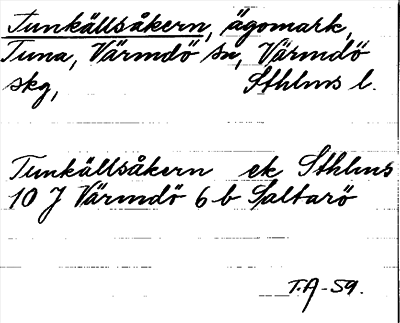 Tunkällsåkern, ägomark,
Tuna, Värmdö sn, Värmdö
skg, Sthlms l.
Tunkällsåkern ek Sthlms
10 J Värmdö 6 b Saltarö
T.A-59.